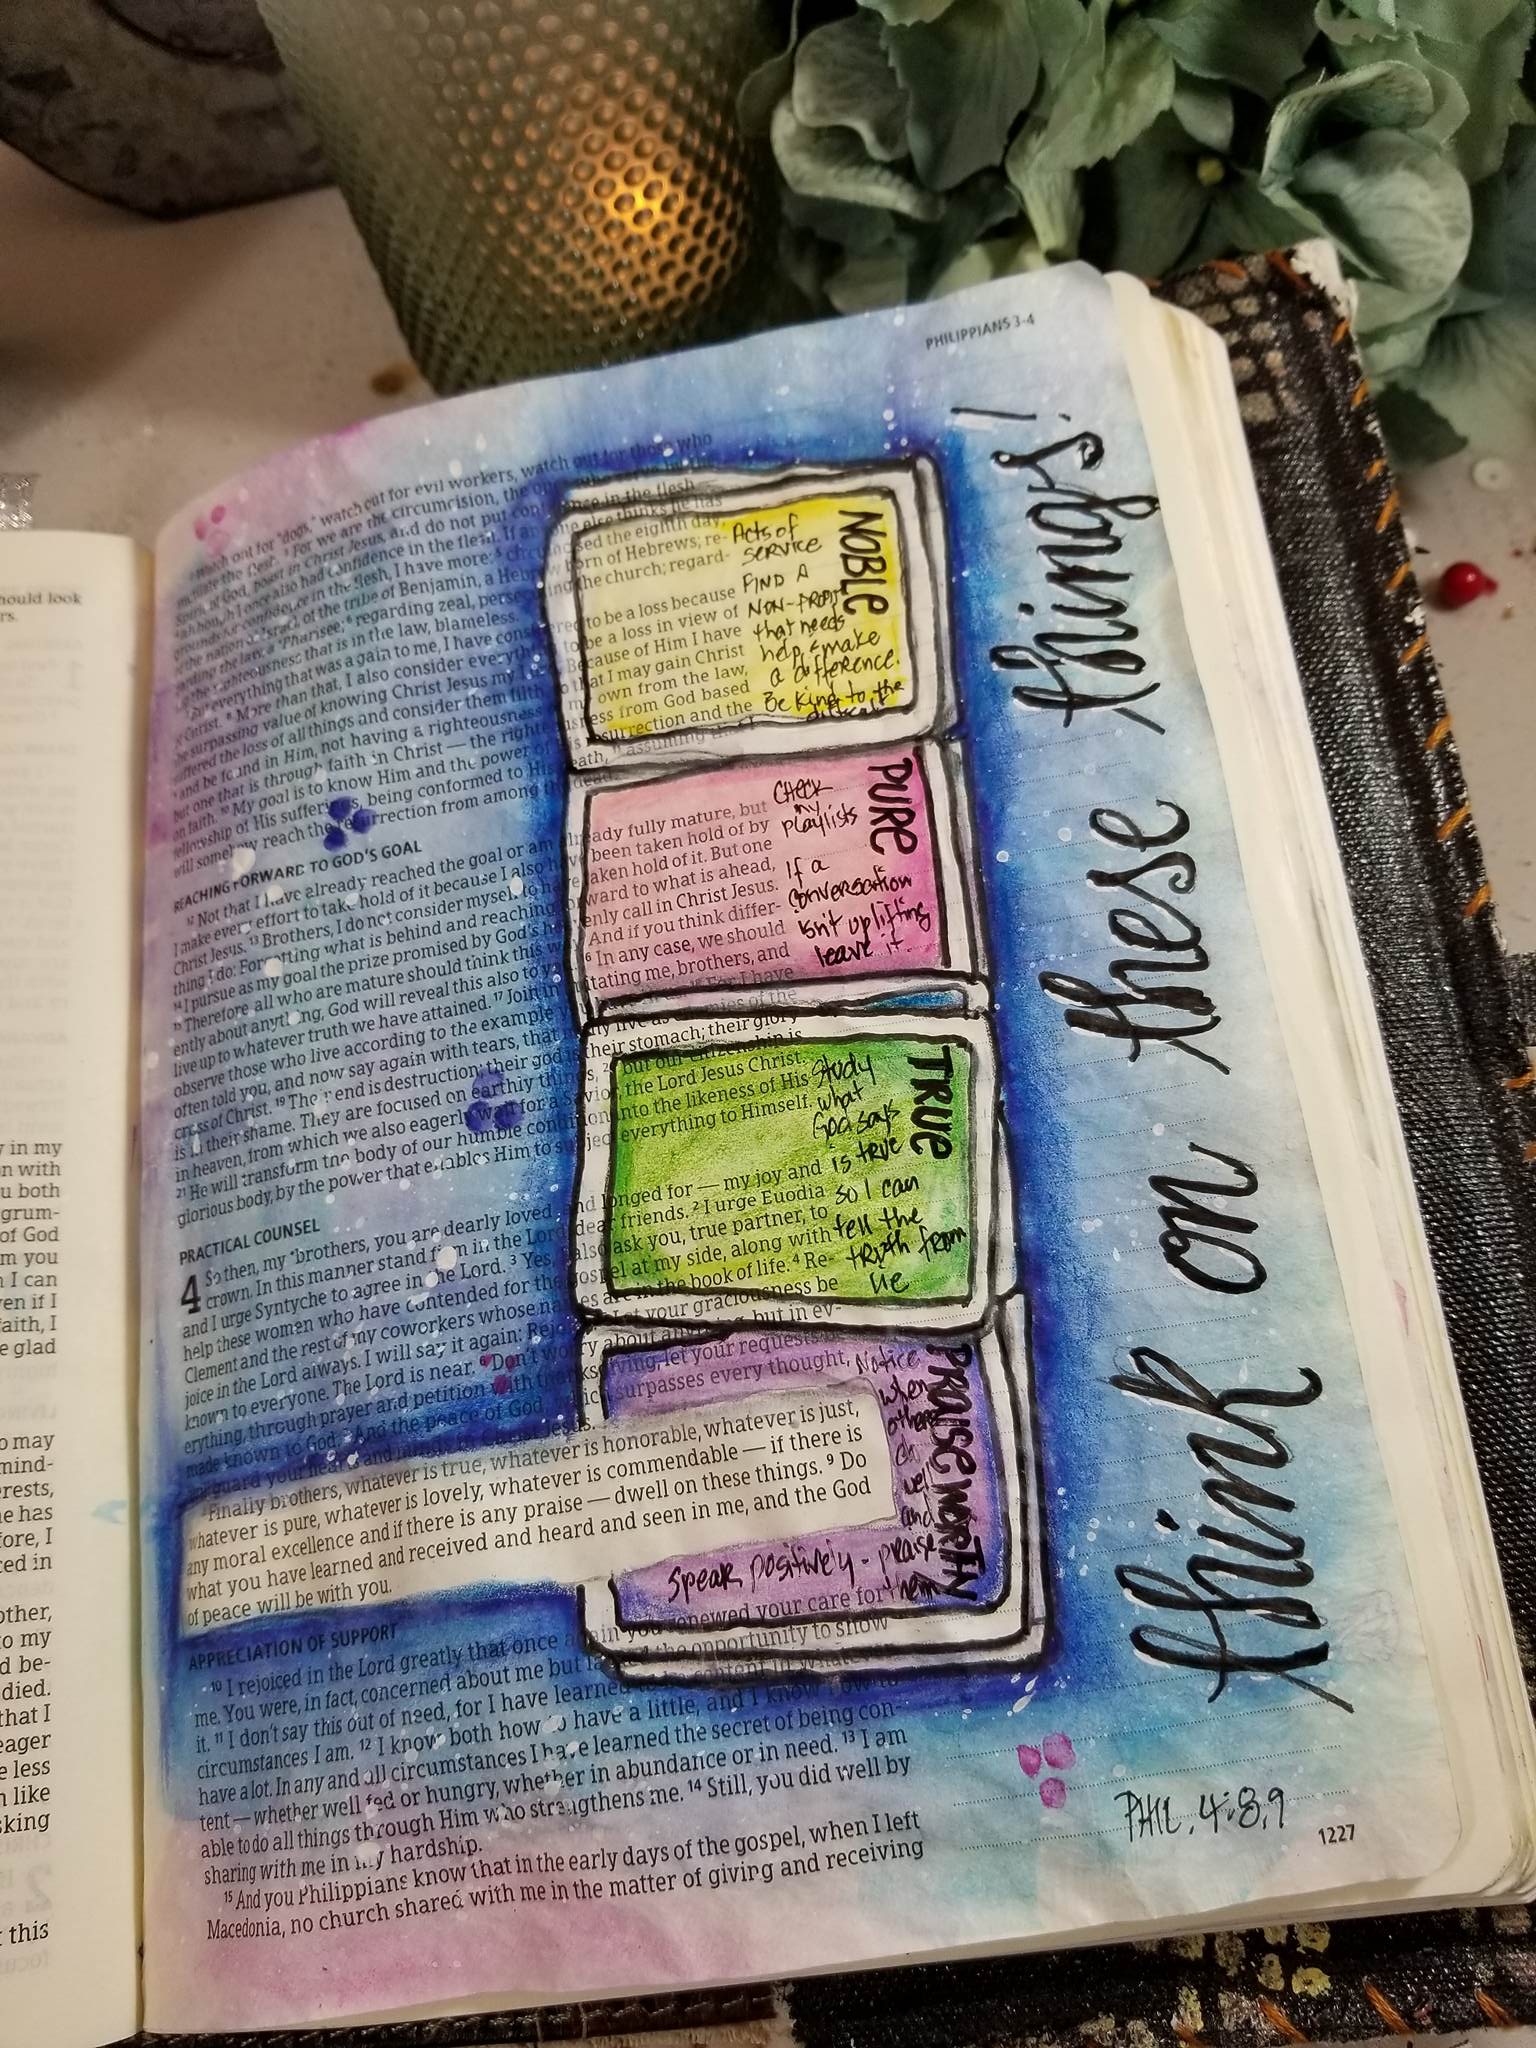 PHILIPPIANS 3-4
watch out for "dogs," watch out for evil workers, watch out for those who
For we are the circumcision, the
boast in Christ Jesus, and do not put
also had confidence in the flesh. If
in the flesh, I have more:
the nation of Israel, of the tribe of Benjamin, a Hebrew born of Hebrews; re-
the law, a Pharisee; ⁶ regarding zeal, persecuting the church; regard-
the righteousness that is in the law, blameless.
everything that was a gain to me, I have considered to be a loss because
Christ. ⁸ More than that, I also consider everything to be a loss in view of
the surpassing value of knowing Christ Jesus my Because of Him I have
suffered the loss of all things and consider them filth, so that I may gain Christ
⁹ and be found in Him, not having a righteousness of my own from the law,
but one that is through faith in Christ — the righteousness from God based
on faith. ¹⁰ My goal is to know Him and the power of His resurrection and the
fellowship of His sufferings, being conformed to His death, ¹¹ assuming that I
will somehow reach the resurrection from among the dead.
REACHING FORWARD TO GOD'S GOAL
¹² Not that I have already reached the goal or am already fully mature, but
I make every effort to take hold of it because I also have been taken hold of by
Christ Jesus. ¹³ Brothers, I do not consider myself to have taken hold of it. But one
thing I do: Forgetting what is behind and reaching forward to what is ahead,
¹⁴ I pursue as my goal the prize promised by God's heavenly call in Christ Jesus.
¹⁵ Therefore all who are mature should think this way. And if you think differ-
ently about anything, God will reveal this also to you. ¹⁶ In any case, we should
live up to whatever truth we have attained. ¹⁷ Join in imitating me, brothers, and
observe those who live according to the example For I have
often told you, and now say again with tears, that many live as enemies of the
cross of Christ. ¹⁹ Their end is destruction; their god is their stomach; their glory
is in their shame. They are focused on earthly things, ²⁰ but our citizenship is
in heaven, from which we also eagerly wait for a Savior, the Lord Jesus Christ.
²¹ He will transform the body of our humble condition into the likeness of His
glorious body, by the power that enables Him to subject everything to Himself.
PRACTICAL COUNSEL
4 So then, my brothers, you are dearly loved and longed for — my joy and
crown. In this manner stand firm in the Lord, dear friends. ² I urge Euodia
and I urge Syntyche to agree in the Lord. ³ Yes, I also ask you, true partner, to
help these women who have contended for the gospel at my side, along with
Clement and the rest of my coworkers whose names are in the book of life. ⁴ Re-
joice in the Lord always. I will say it again: Rejoice! ⁵ Let your graciousness be
known to everyone. The Lord is near. ⁶ Don't worry about anything, but in ev-
erything, through prayer and petition with thanksgiving, let your requests be
made known to God. ⁷ And the peace of God, which surpasses every thought,
guard your hearts and minds in Christ Jesus.
⁸ Finally brothers, whatever is true, whatever is honorable, whatever is just,
whatever is pure, whatever is lovely, whatever is commendable — if there is
any moral excellence and if there is any praise — dwell on these things. ⁹ Do
what you have learned and received and heard and seen in me, and the God
of peace will be with you.
APPRECIATION OF SUPPORT
¹⁰ I rejoiced in the Lord greatly that once again you renewed your care for
me. You were, in fact, concerned about me but lacked the opportunity to show
it. ¹¹ I don't say this out of need, for I have learned to be content in whatever
circumstances I am. ¹² I know both how to have a little, and I know how to
have a lot. In any and all circumstances I have learned the secret of being con-
tent — whether well fed or hungry, whether in abundance or in need. ¹³ I am
able to do all things through Him who strengthens me. ¹⁴ Still, you did well by
sharing with me in my hardship.
¹⁵ And you Philippians know that in the early days of the gospel, when I left
Macedonia, no church shared with me in the matter of giving and receiving
NOBLE
Acts of
service
FIND A
NON-PROFIT
that needs
help & make
a difference.
Be kind to the
difficult
PURE
CHECK
my
playlists
If a
conversation
isn't uplifting
leave it.
TRUE
Study
what
God says
is true
so I can
tell the
truth from
lie
PRAISEWORTHY
Notice
when
others
do
well
and
praise
them
Speak positively -
think on these things!
PHIL. 4:8,9
1227
hould look
rs.
y in my
n with
u both
grum-
of God
m you
n I can
ven if I
faith, I
e glad
o may
mind-
rests,
e has
fore, I
ced in
other,
to my
d be-
died.
that I
eager
e less
n like
sking
this